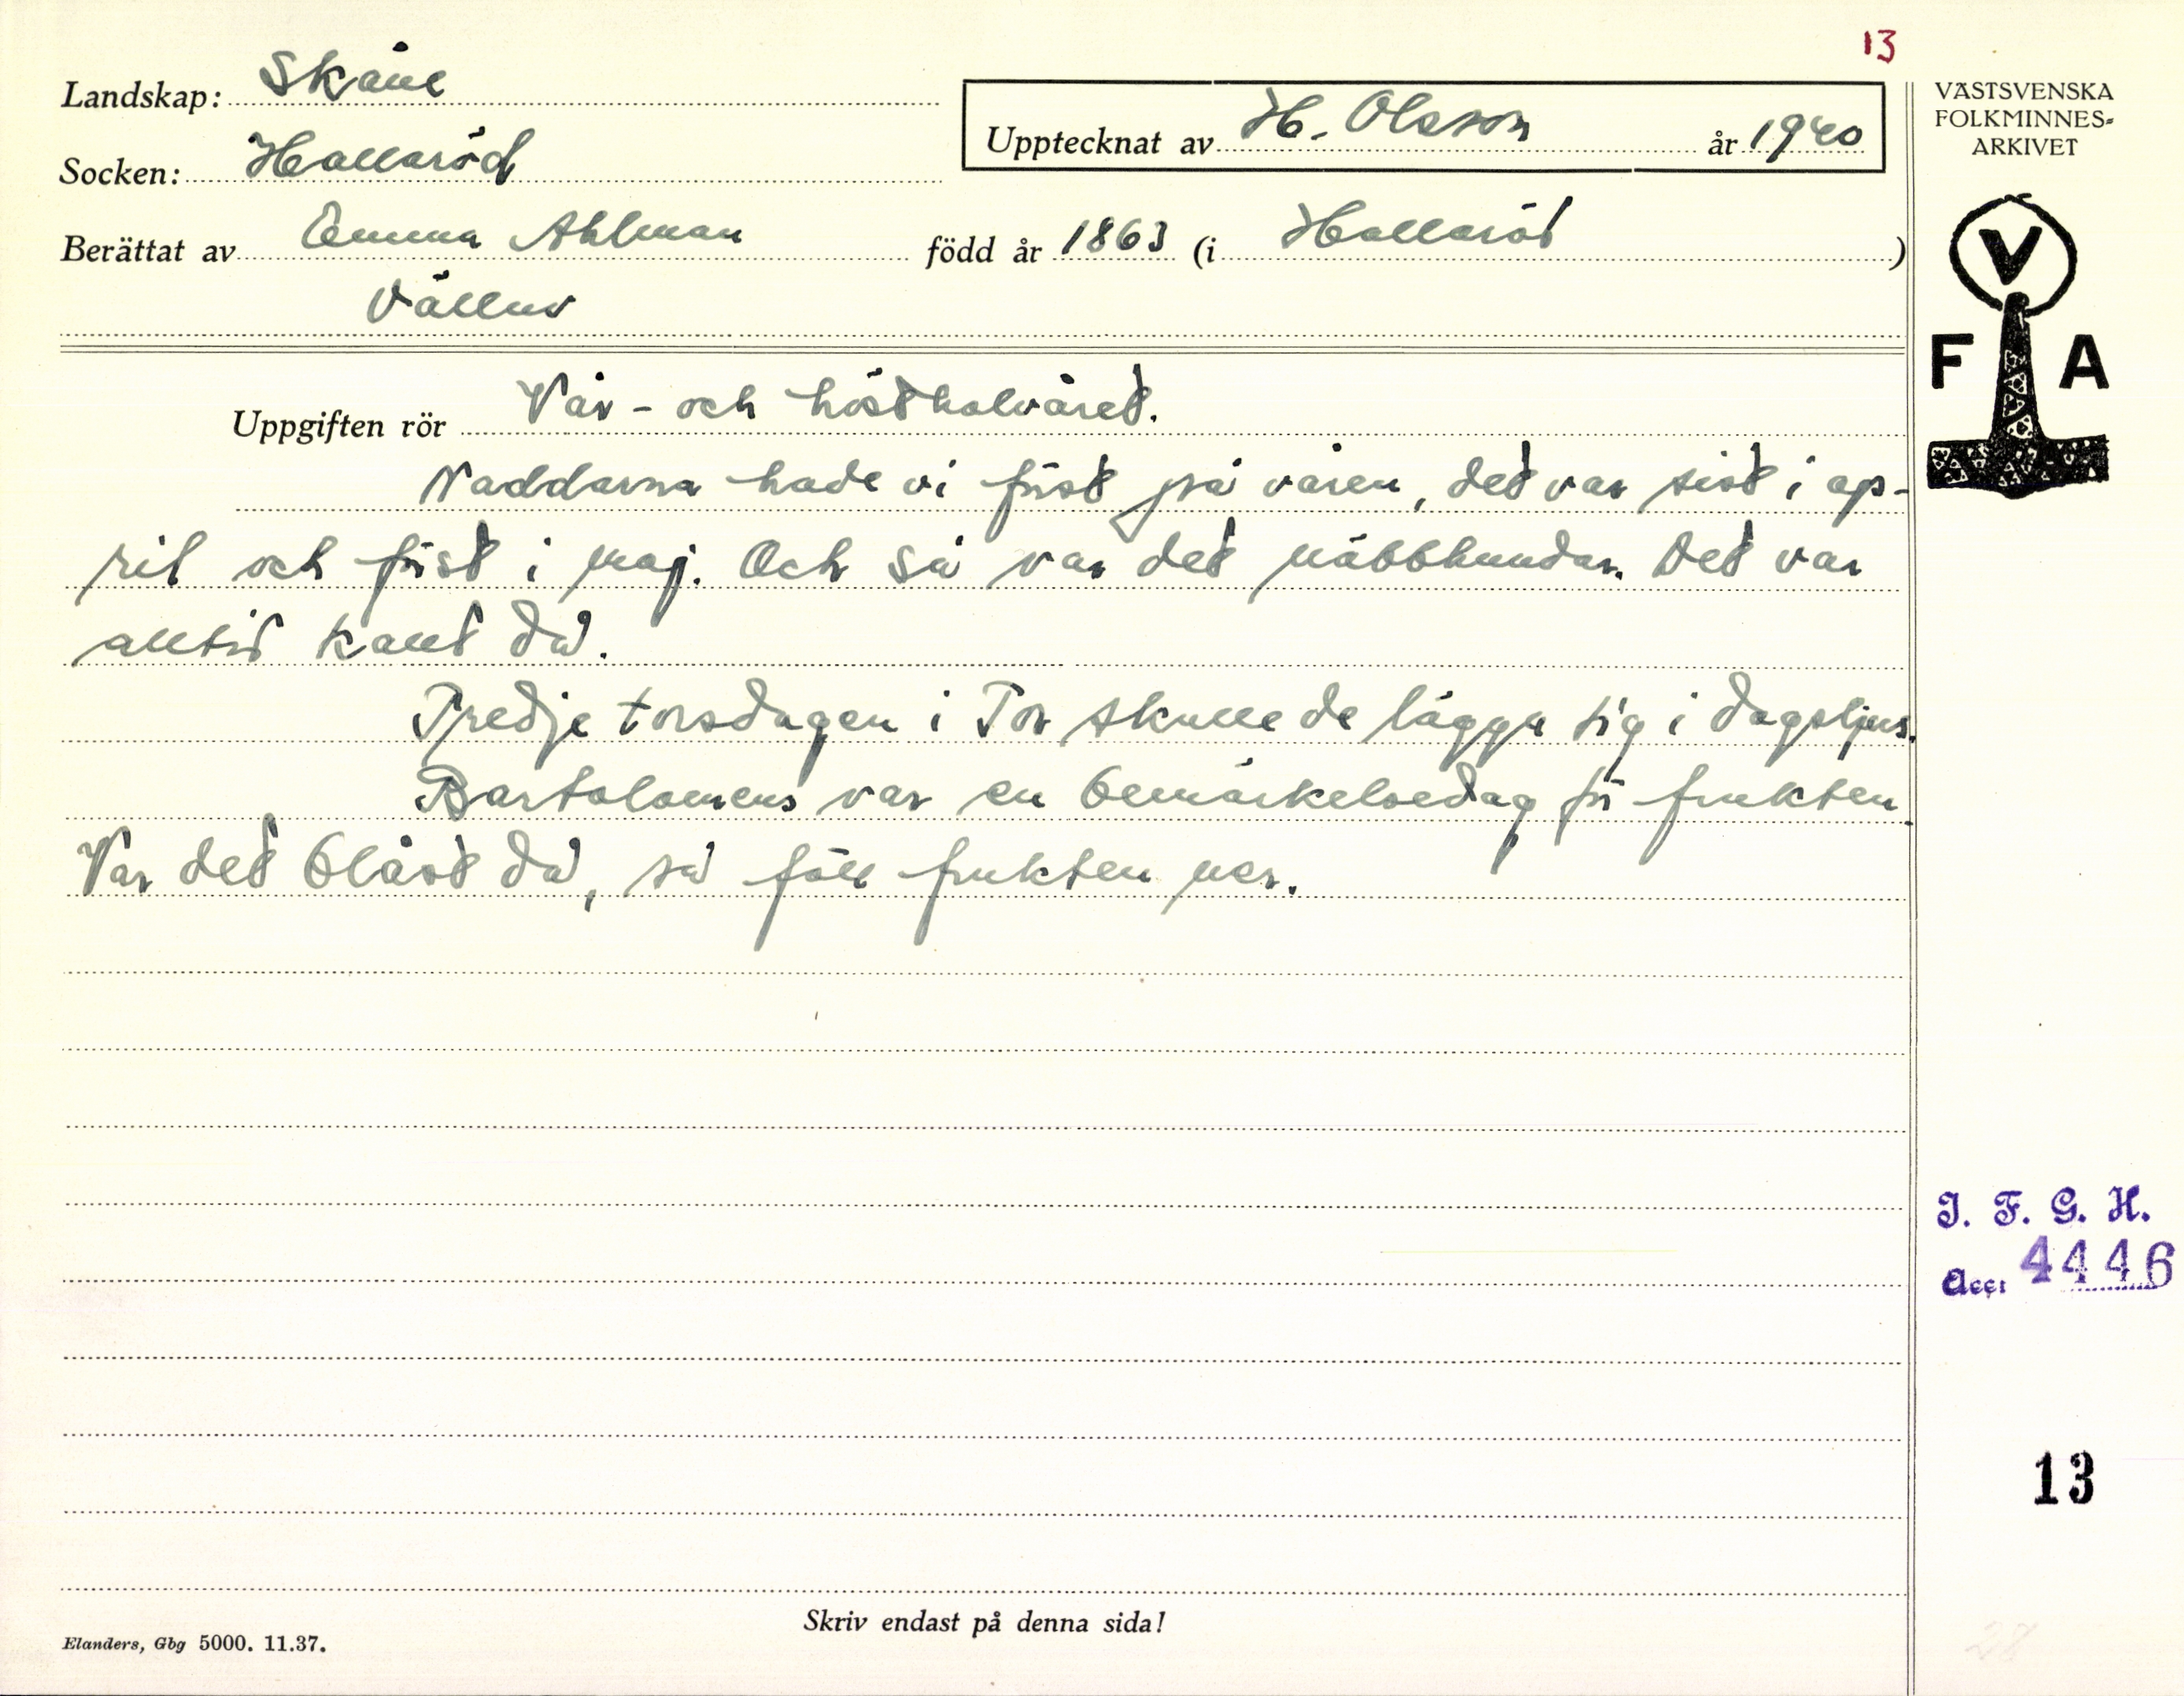 13
Landskap: Skåne
Upptecknat av H. Olsson år 1940
Socken: Hallaröd
Berättat av Emma Ahlman född år 1863 (i Hallaröd)
Vällus
VÄSTSVENSKA
FOLKMINNES-
ARKIVET
V
F A
Uppgiften rör Vår- och hösthalvåret.
Naddarna hade vi först på våren, det var sist i ap-
ril och först i maj. Och så var det näbbhundar. Det var
alltid kallt då.
Tredje torsdagen i Tor skulle de lägga sig i dagsljus.
Bartolomeus var en bemärkelsedag för frukten.
Var det blåst då, så föll frukten ner.
I. F. G. H.
acc: 4446
13
Skriv endast på denna sida!
Elanders, Gbg 5000. 11.37.